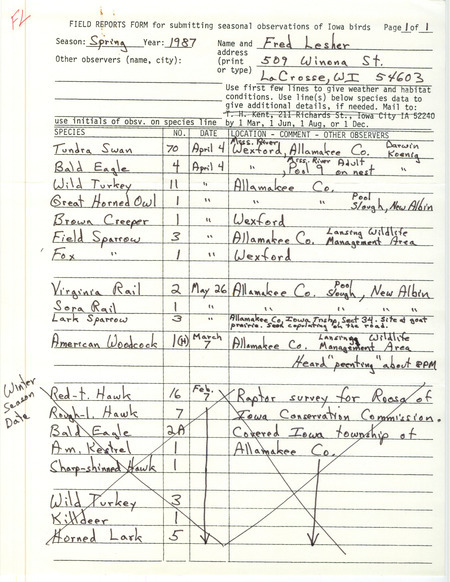 FL
FIELD REPORTS FORM for submitting seasonal observations of Iowa birds Page 1 of 1
Season: Spring Year: 1987 Name and address (print or type) Fred Lesher
Other observers (name, city): 509 Winona St.
LaCrosse, WI 54603
Use first few lines to give weather and habitat
conditions. Use line(s) below species data to
give additional details, if needed. Mail to:
T. H. Kent, 211 Richards St., Iowa City IA 52240
use initials of obsv. on species line by 1 Mar, 1 Jun, 1 Aug, or 1 Dec.
SPECIES NO. DATE LOCATION - COMMENT - OTHER OBSERVERS
Tundra Swan 70 April 4 Miss. River Wexford, Allamakee Co. Darwin Koenig
Bald Eagle 4 April 4 " Miss. River Pool 9 Adult on nest "
Wild Turkey 11 " Allamakee Co.
Great Horned Owl 1 " " " Pool Slough, New Albin
Brown Creeper 1 " Wexford
Field Sparrow 3 " Allamakee Co. Lansing Wildlife Management Area
Fox " 1 " Wexford
Virginia Rail 2 May 26 Allamakee Co. Pool Slough, New Albin
Sora Rail 1 " " " " " "
Lark Sparrow 3 " Allamakee Co, Iowa Tnshp, Sect 34. Site a goat
prairie. Seed copulating on the road.
American Woodcock 1(H) March 7 Allamakee Co. Lansing Wildlife Management Area
Heard "peenting" about 8PM
Winter Season Date
Red-t. Hawk 16 Feb. 7 Raptor survey for Roosa of
Rough-l. Hawk 7 Iowa Conservation Commission.
Bald Eagle 2A Covered Iowa township of
Am. Kestrel 1 Allamakee Co.
Sharp-shinned Hawk 1
Wild Turkey 3
Killdeer 1
Horned Lark 5